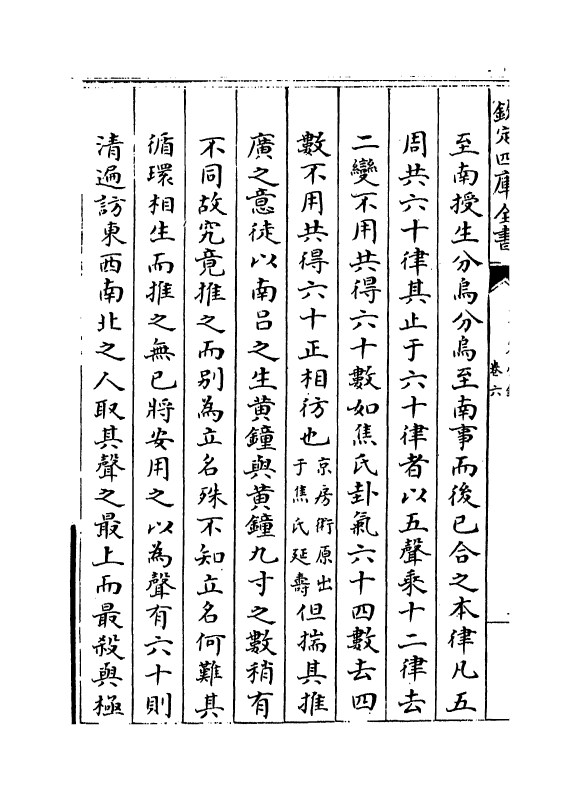 欽定四庫全書
卷六
至南授生分烏分烏至南事而後已合之本律凡五
周共六十律其止于六十律者以五聲乘十二律去
二變不用共得六十數如焦氏卦氣六十四數去四
數不用共得六十正相彷也京房術原出于焦氏延壽但揣其推
廣之意徒以南吕之生黄鐘與黄鐘九寸之數稍有
不同故究竟推之而别為立名殊不知立名何難其
循環相生而推之無已將安用之以為聲有六十則
清遍訪東西南北之人取其聲之最上而最殺與極